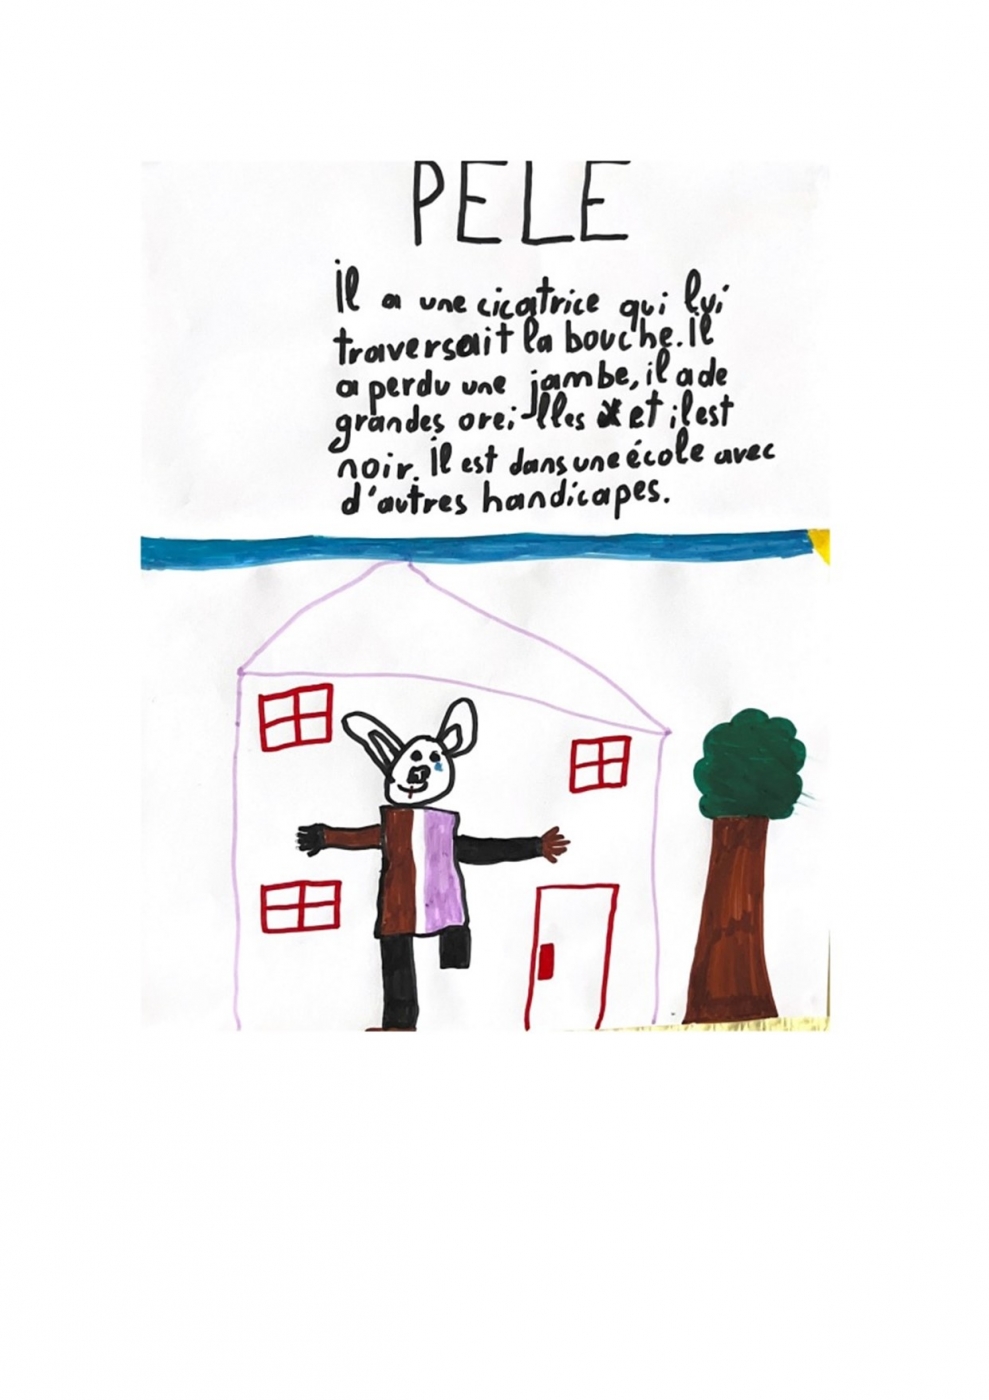 PELE
Il a une cicatrice qui lui
traversait la bouche. Il
a perdu une jambe, il a de
grandes oreilles et il est
noir. Il est dans une école avec
d'autres handicapes.